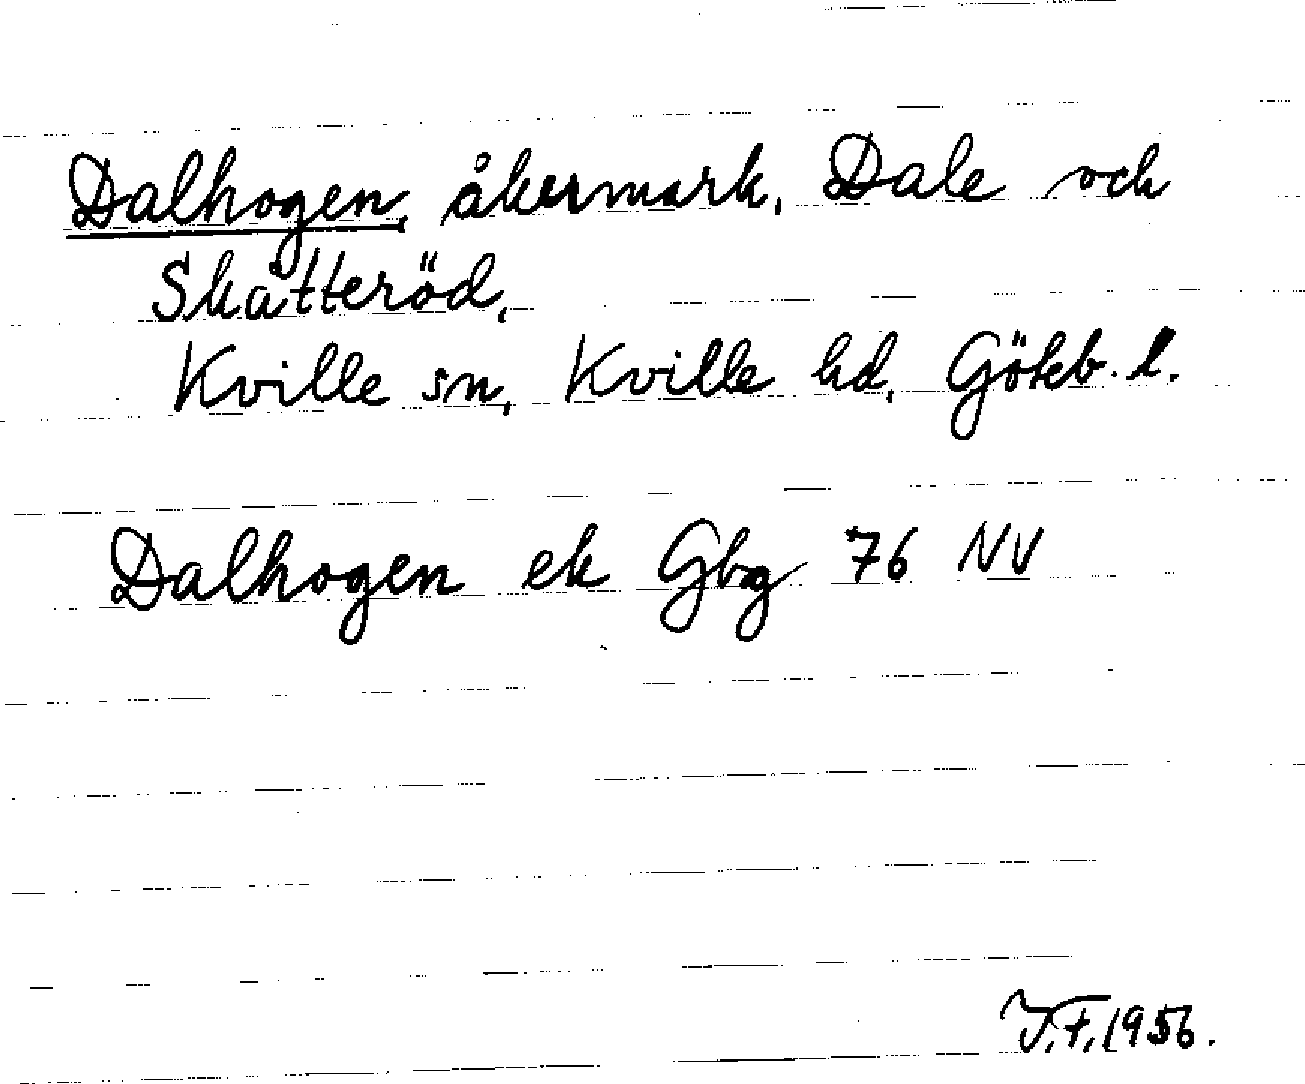 Dalhogen, åkermark, Dale och
Skätteröd,
Kville sn, Kville hd, Göteb. l.
Dalhogen ek Gbg 76 NV
J.F. 1956.